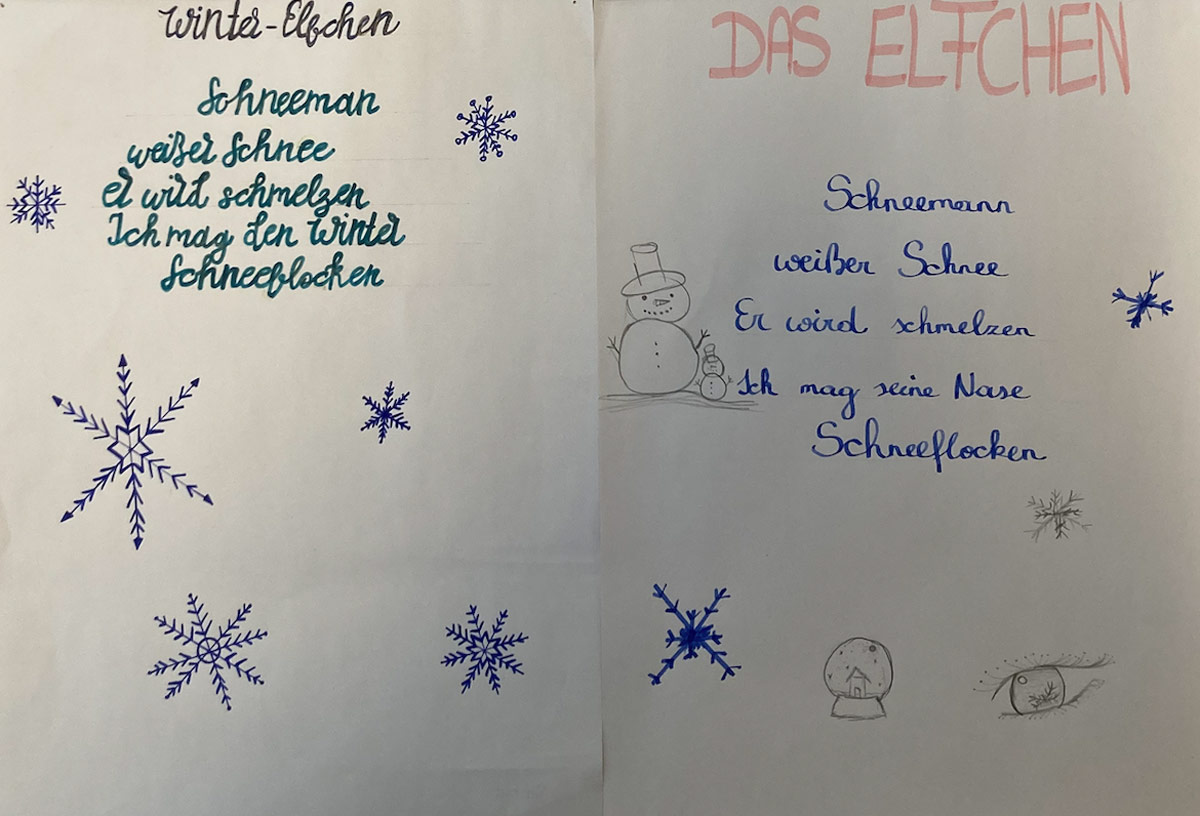 Winter-Elfchen
Schneeman
weißer Schnee
er wird schmelzen
Ich mag den Winter
Schneeflocken
DAS ELFCHEN
Schneemann
weißer Schnee
Er wird schmelzen
Ich mag seine Nase
Schneeflocken